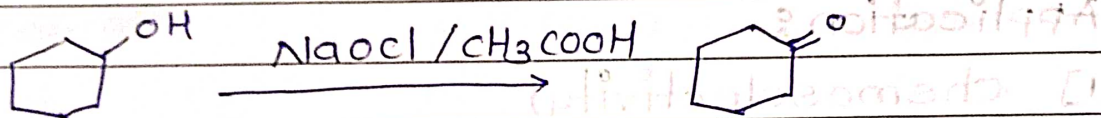 OH NaOCl / CH3COOH O